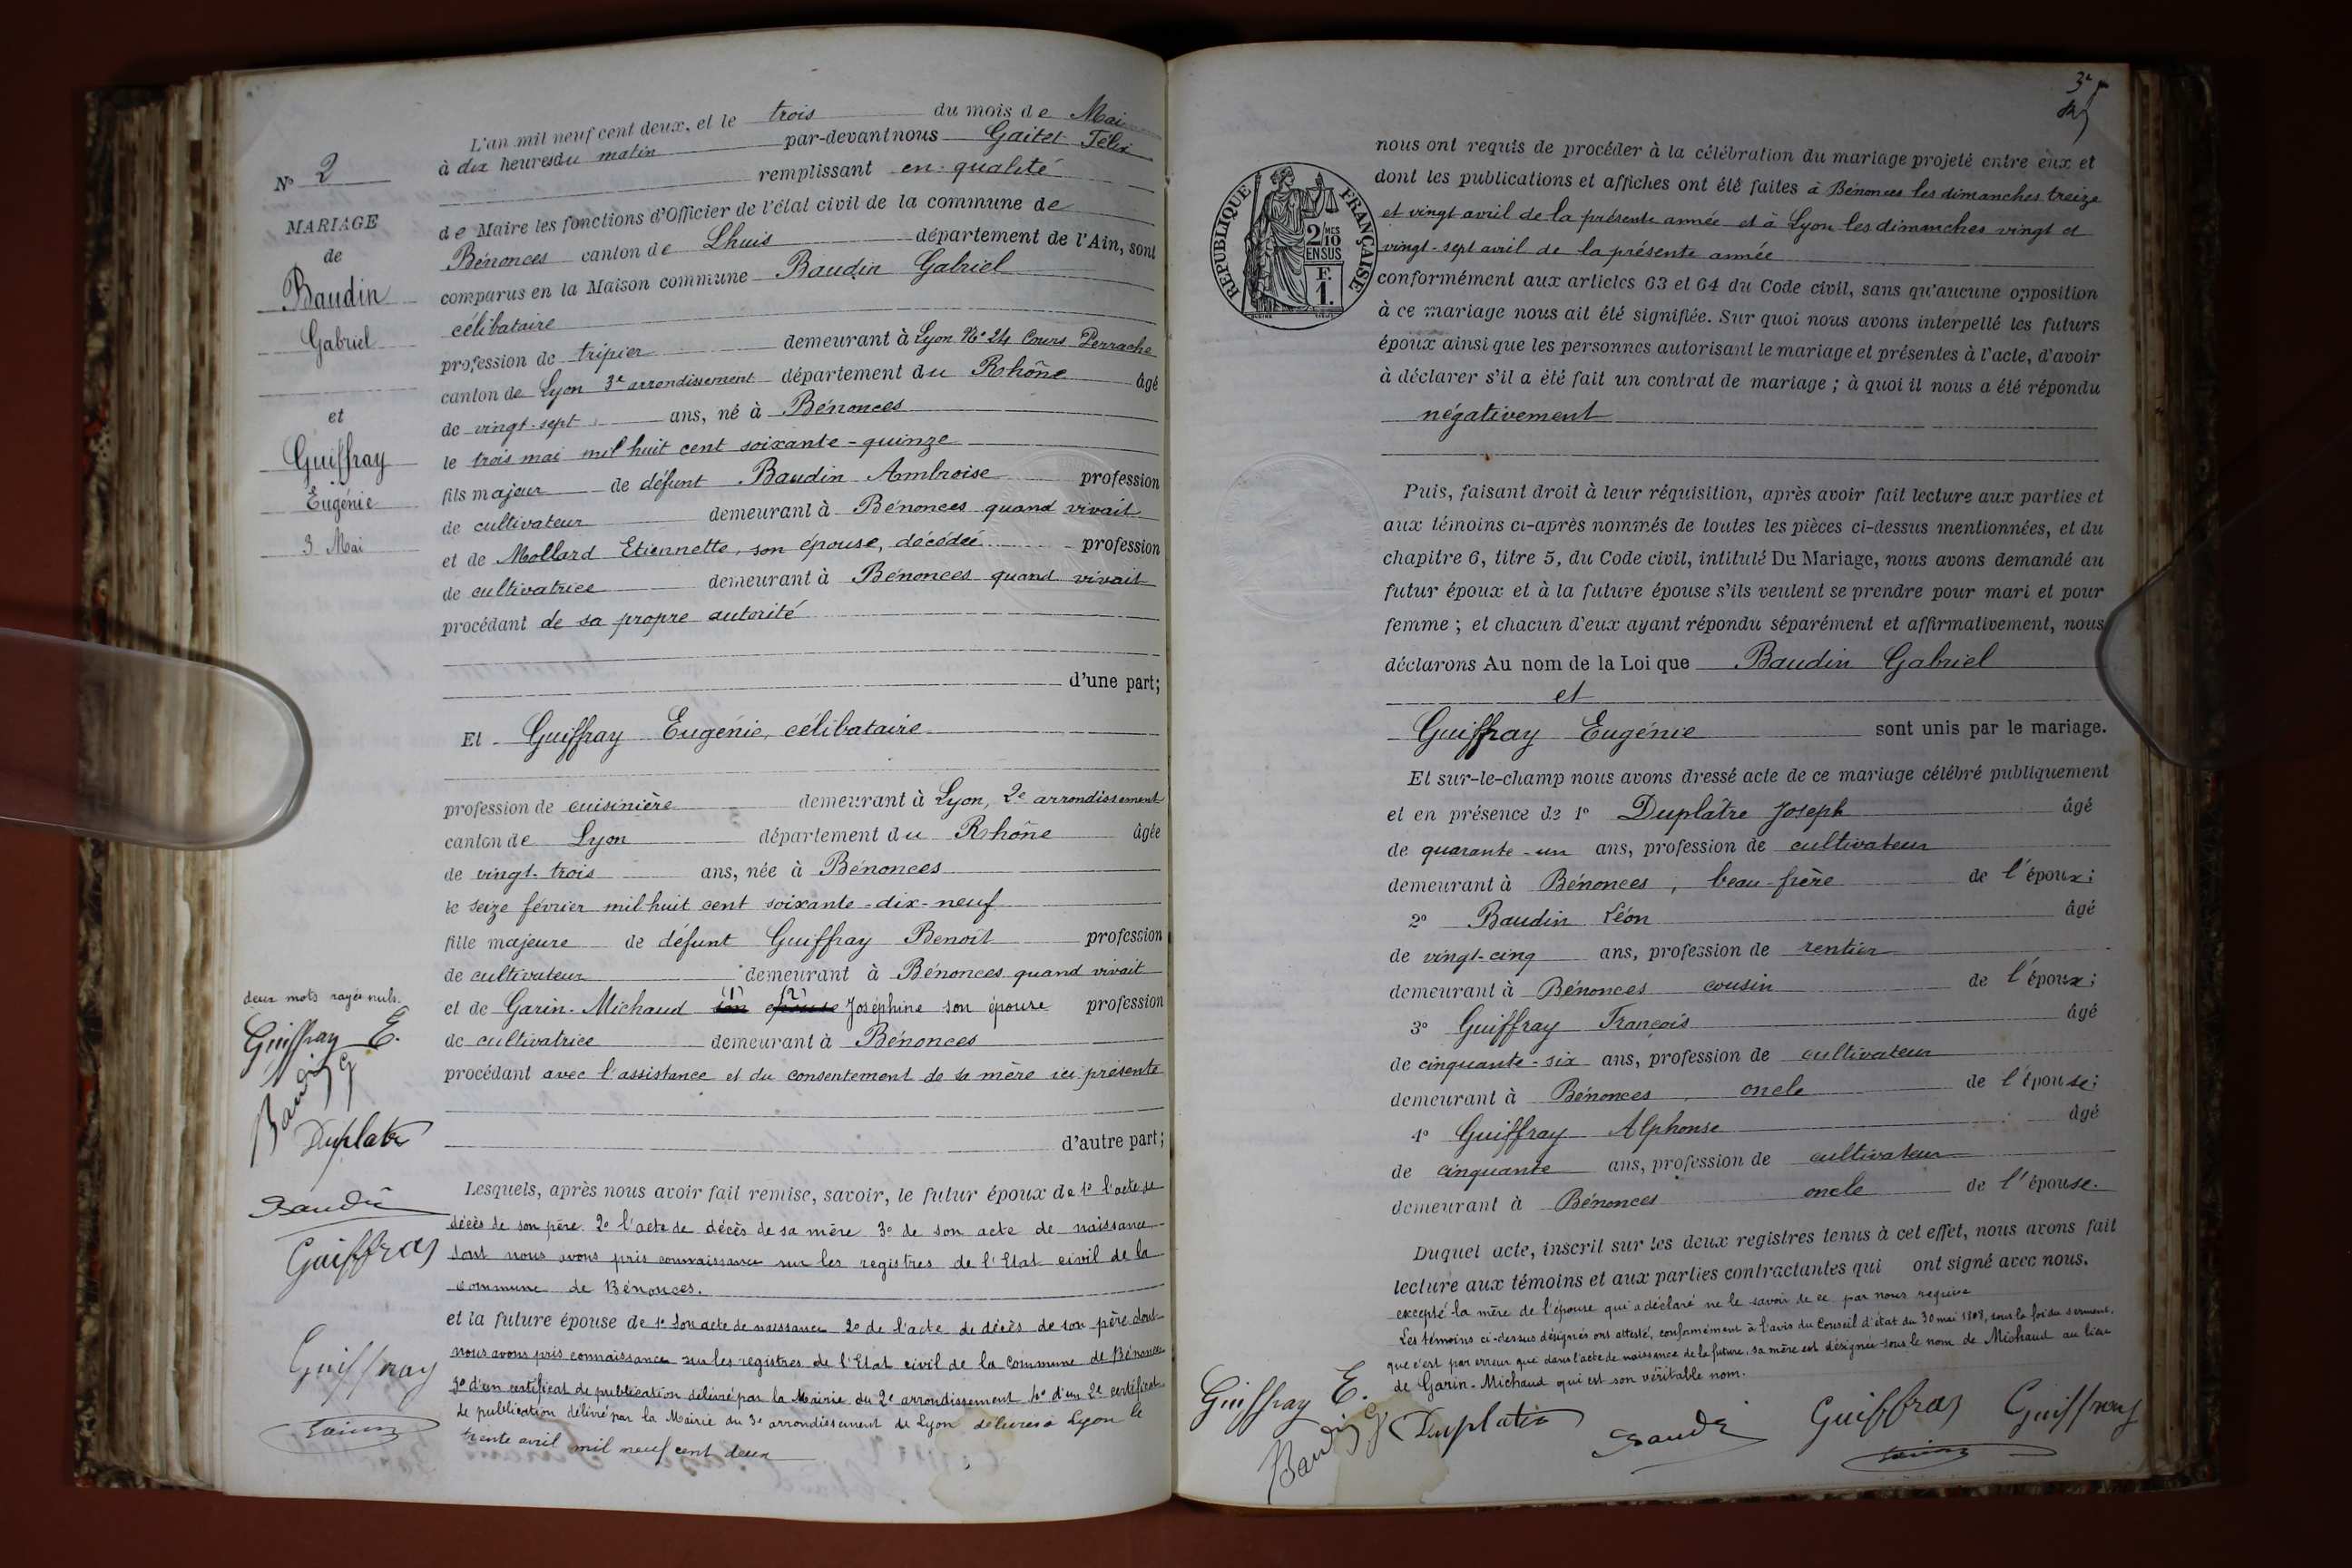 N° 2
MARIAGE
de
Baudin
Gabriel
et
Guiffray
Eugénie
3 Mai
L'an mil neuf cent deux, et le trois du mois de Mai
à dix heures du matin par-devant nous Gaitet Félix
remplissant en qualité
de Maire les fonctions d'Officier de l'état civil de la commune de
Bénonces canton de Lhuis département de l'Ain, sont
comparus en la Maison commune Baudin Gabriel
célibataire
profession de tripier demeurant à Lyon N° 24 Cours Perrache
canton de Lyon 3e arrondissement département du Rhône âgé
de vingt-sept ans, né à Bénonces
le trois mai mil huit cent soixante-quinze
fils majeur de défunt Baudin Ambroise profession
de cultivateur demeurant à Bénonces quand vivait
et de Mollard Etiennette, son épouse, décédée profession
de cultivatrice demeurant à Bénonces quand vivait
procédant de sa propre autorité
d'une part;
Et Guiffray Eugénie, célibataire
profession de cuisinière demeurant à Lyon, 2e arrondissement
canton de Lyon département du Rhône âgée
de vingt-trois ans, née à Bénonces
le seize février mil huit cent soixante-dix-neuf
fille majeure de défunt Guiffray Benoît profession
de cultivateur demeurant à Bénonces quand vivait
et de Garin-Michaud (1) son (2) épouse Joséphine son épouse profession
de cultivatrice demeurant à Bénonces
procédant avec l'assistance et du consentement de sa mère ici présente
d'autre part;
Lesquels, après nous avoir fait remise, savoir, le futur époux de 1° l'acte de
décès de son père 2° l'acte de décès de sa mère 3° de son acte de naissance
dont nous avons pris connaissance sur les registres de l'Etat civil de la
commune de Bénonces.
et la future épouse de 1° son acte de naissance 2° de l'acte de décès de son père dont
nous avons pris connaissance sur les registres de l'Etat civil de la commune de Bénonces
3° d'un certificat de publication délivré par la Mairie du 2e arrondissement 4° d'un 2e certificat
de publication délivré par la Mairie du 3e arrondissement de Lyon délivrés à Lyon le
trente avril mil neuf cent deux
deux mots rayés nuls.
Guiffray E.
Baudin G
Duplatre
Baudin
Guiffray
Guiffray
3e
nous ont requis de procéder à la célébration du mariage projeté entre eux et
dont les publications et affiches ont été faites à Bénonces les dimanches treize
et vingt avril de la présente année et à Lyon les dimanches vingt et
vingt-sept avril de la présente année
conformément aux articles 63 et 64 du Code civil, sans qu'aucune opposition
à ce mariage nous ait été signifiée. Sur quoi nous avons interpellé les futurs
époux ainsi que les personnes autorisant le mariage et présentes à l'acte, d'avoir
à déclarer s'il a été fait un contrat de mariage ; à quoi il nous a été répondu
négativement
RÉPUBLIQUE FRANÇAISE
2/10 MES
EN SUS
F.
1.
Puis, faisant droit à leur réquisition, après avoir fait lecture aux parties et
aux témoins ci-après nommés de toutes les pièces ci-dessus mentionnées, et du
chapitre 6, titre 5, du Code civil, intitulé Du Mariage, nous avons demandé au
futur époux et à la future épouse s'ils veulent se prendre pour mari et pour
femme ; et chacun d'eux ayant répondu séparément et affirmativement, nous
déclarons Au nom de la Loi que Baudin Gabriel
et
Guiffray Eugénie sont unis par le mariage.
Et sur-le-champ nous avons dressé acte de ce mariage célébré publiquement
et en présence de 1° Duplâtre Joseph âgé
de quarante-un ans, profession de cultivateur
demeurant à Bénonces, beau-frère de l'époux;
2° Baudin Léon âgé
de vingt-cinq ans, profession de rentier
demeurant à Bénonces cousin de l'époux;
3° Guiffray François âgé
de cinquante-six ans, profession de cultivateur
demeurant à Bénonces, oncle de l'épouse;
4° Guiffray Alphonse âgé
de cinquante ans, profession de cultivateur
demeurant à Bénonces oncle de l'épouse.
Duquel acte, inscrit sur les deux registres tenus à cet effet, nous avons fait
lecture aux témoins et aux parties contractantes qui ont signé avec nous.
excepté la mère de l'épouse qui a déclaré ne le savoir de ce par nous requise
Les témoins ci-dessus désignés ont attesté, conformément à l'avis du Conseil d'état du 30 mai 1808, sous la foi du serment,
que c'est par erreur que dans l'acte de naissance de la future, sa mère est désignée sous le nom de Michaud au lieu
de Garin-Michaud qui est son véritable nom.
Guiffray E.
Baudin G
Duplatre
Baudin
Guiffray
Guiffray